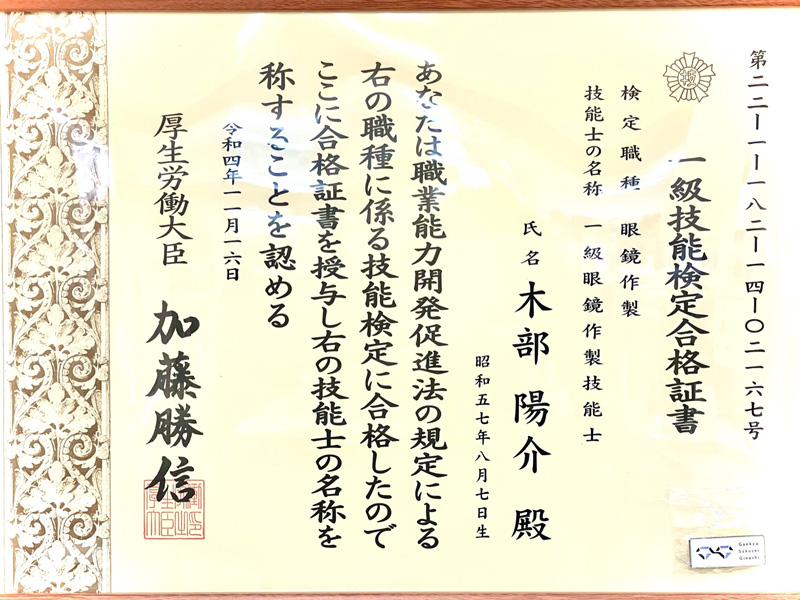 第二二ー一ー一八二ー一四ー〇二一六七号
一級技能検定合格証書
検定職種 眼鏡作製
技能士の名称 一級眼鏡作製技能士
氏名 木部 陽介 殿
昭和五七年八月七日生
あなたは職業能力開発促進法の規定による
右の職種に係る技能検定に合格したので
ここに合格証書を授与し右の技能士の名称を
称することを認める
令和四年一一月一六日
厚生労働大臣 加藤勝信
Gankyo
Sakusei
Ginoshi